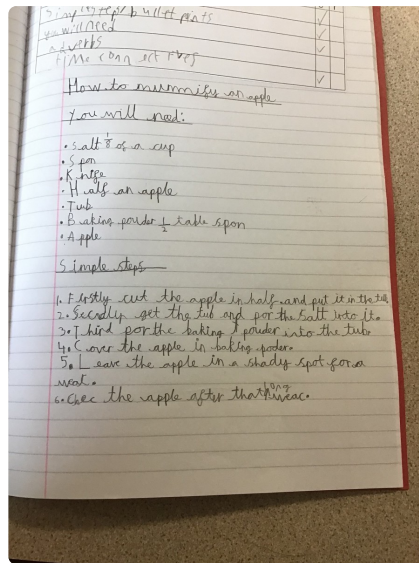 Simple steps/bullet points
you will need
adverbs
time connectives
How to mummify an apple
You will need:
• Salt 1/8 of a cup
• Spon
• Knife
• Half an apple
• Tub
• Baking powder 1/2 table spon
• Apple
Simple steps
1. Firstly cut the apple in half. and put it in the tub
2. Secndly get the tub and por the salt into it.
3. Third por the baking powder into the tub.
4. Cover the apple in baking poder.
5. Leave the apple in a shady spot for a
weak.
6. Chec the apple after that long weac.